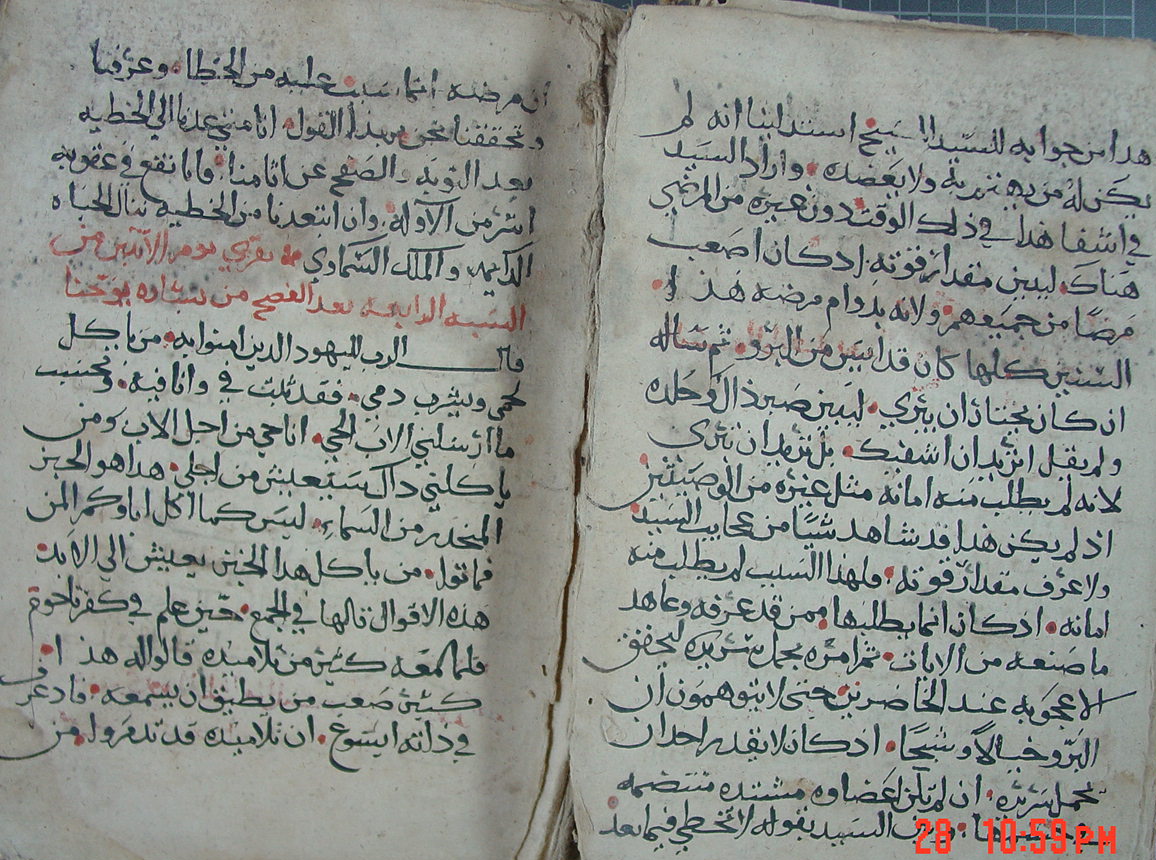 هدا من جوابه للسيد المسيح استدلينا انه لم
يكن له من يهتم به ولا يعضده. واراد السيد
في اشفا هدا في ذلك الوقت دون غيره من المرضي
هناك. ليبين مقدار قوته. اد كان اصعب
مرضا من جميعهم. ولانه بدوام مرضه هذ ه
السنين كلها كان قد ايس من البرو. ثم ساله
ان كان مختاز ان يبري. ليبين صبر ذال وحلده
ولم يقل اتريد ان اشفيك. بل تريد ان تبري
لانه لم يطلب منه امانه مثل غيره من الوصبين
اذ لم يكن هدا قد شاهد شيا من عجايب السيد
ولا عرف مقدار قوته. فلهدا السبب لم يطلب منه
امانه. اذ كان انما يطلبها ممن قد عرفه وعاهد
ما صنعه من الايات. ثم امره بحمل سريره ليحقق
الاعجوبه عند الحاضرين حتي لا يتوهمون ان
البرو خيالا وشبحا. اذ كان لا يقدر احد ان
يحمل سريره. ان لم تكن اعضاوه مشتده
السيد بقوله لا تخطي فيما بعد
ان مرضه انما سبب عليه من الخطا. وعرفنا
وتحققنا نحن من هدا القول. انا متي عدنا الي الخطيه
بعد التوبه والصفح عن اثامنا. فانا نقع في عقوبه
اشر من الاوله. وان ابتعدنا من الخطيه ننال الحياه
الدايمه والملك السماوي يقري يوم الاثنين من
السبه الرابعه بعد الفصح من بشاره يوحنا
قال الرب لليهود الدين امنوا به. من ياكل
لحمي ويشرب دمي. فقد ثبت في وانا فيه. وبحسب
ما ارسلني الاب الحي. انا حي من اجل الاب ومن
ياكلني داك سيعيش من اجلي. هدا هو الخبز
المنحدر من السماء. ليس كما اكل اباوكم المن
فماتوا. من ياكل هدا الخبز يعيش الي الابد
هذه الاقوال قالها في المجمع. حين علم في كفرناحوم
فلما سمعه كثير من تلاميده قالوا له هذ ا.
كثير صعب من يطيق ان يسمعه. فاد عرف
في داته ايسوع. ان تلاميده قد تدمروا. من